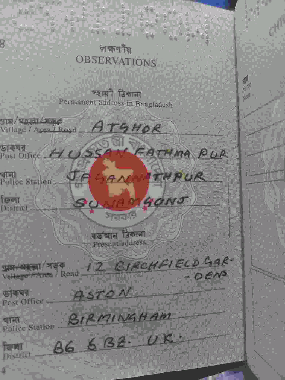 লক্ষণীয়
OBSERVATIONS
স্থায়ী ঠিকানা
Permanent Address in Bangladesh
গ্রাম/মহল্লা/সড়ক
Village / Area / Road ATGHOR
ডাকঘর
Post Office HUSSAIN FATHMA PUR
থানা
Police Station JAGANNATHPUR
জিলা
District SUNAMGONJ
বর্তমান ঠিকানা
Present address
গ্রাম/মহল্লা/সড়ক
Village / Area / Road 12 BIRCHFIELD GAR-
-DENS
ডাকঘর
Post Office ASTON
থানা
Police Station BIRMINGHAM
জিলা
District B6 6BZ. UK.
4